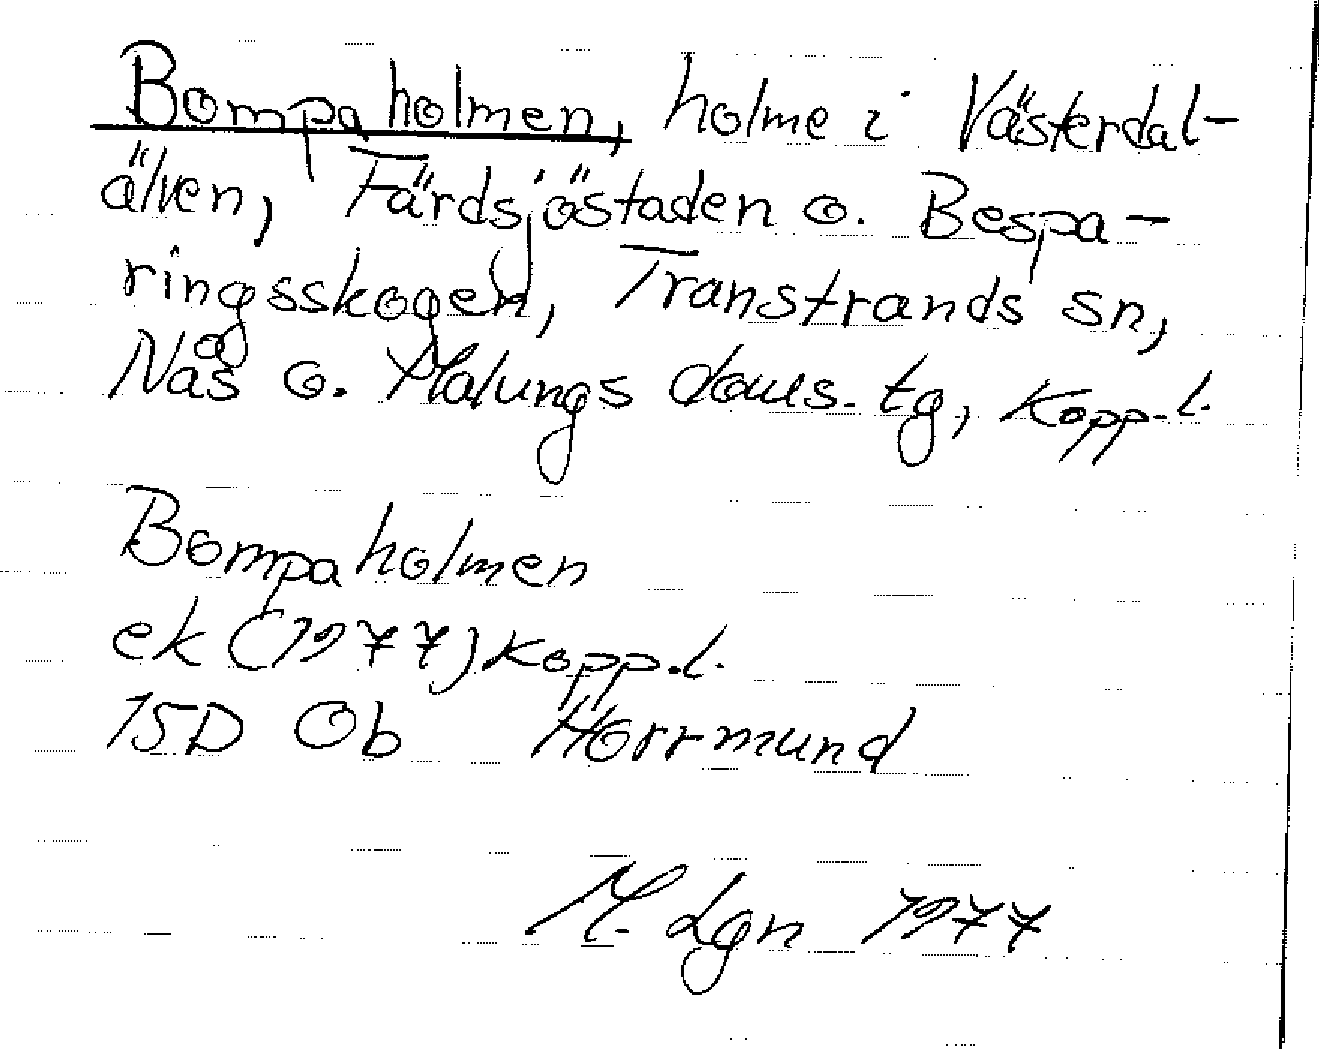 Bompaholmen, holme i Västerdal-
älven, Färdsjöstaden o. Bespa-
ringsskogen, Transtrands sn,
Nås o. Malungs doms. tg, Kopp.l.
Bompaholmen
ek (1977) Kopp.l.
15D Ob Hörrmund
M. Lgn 1977